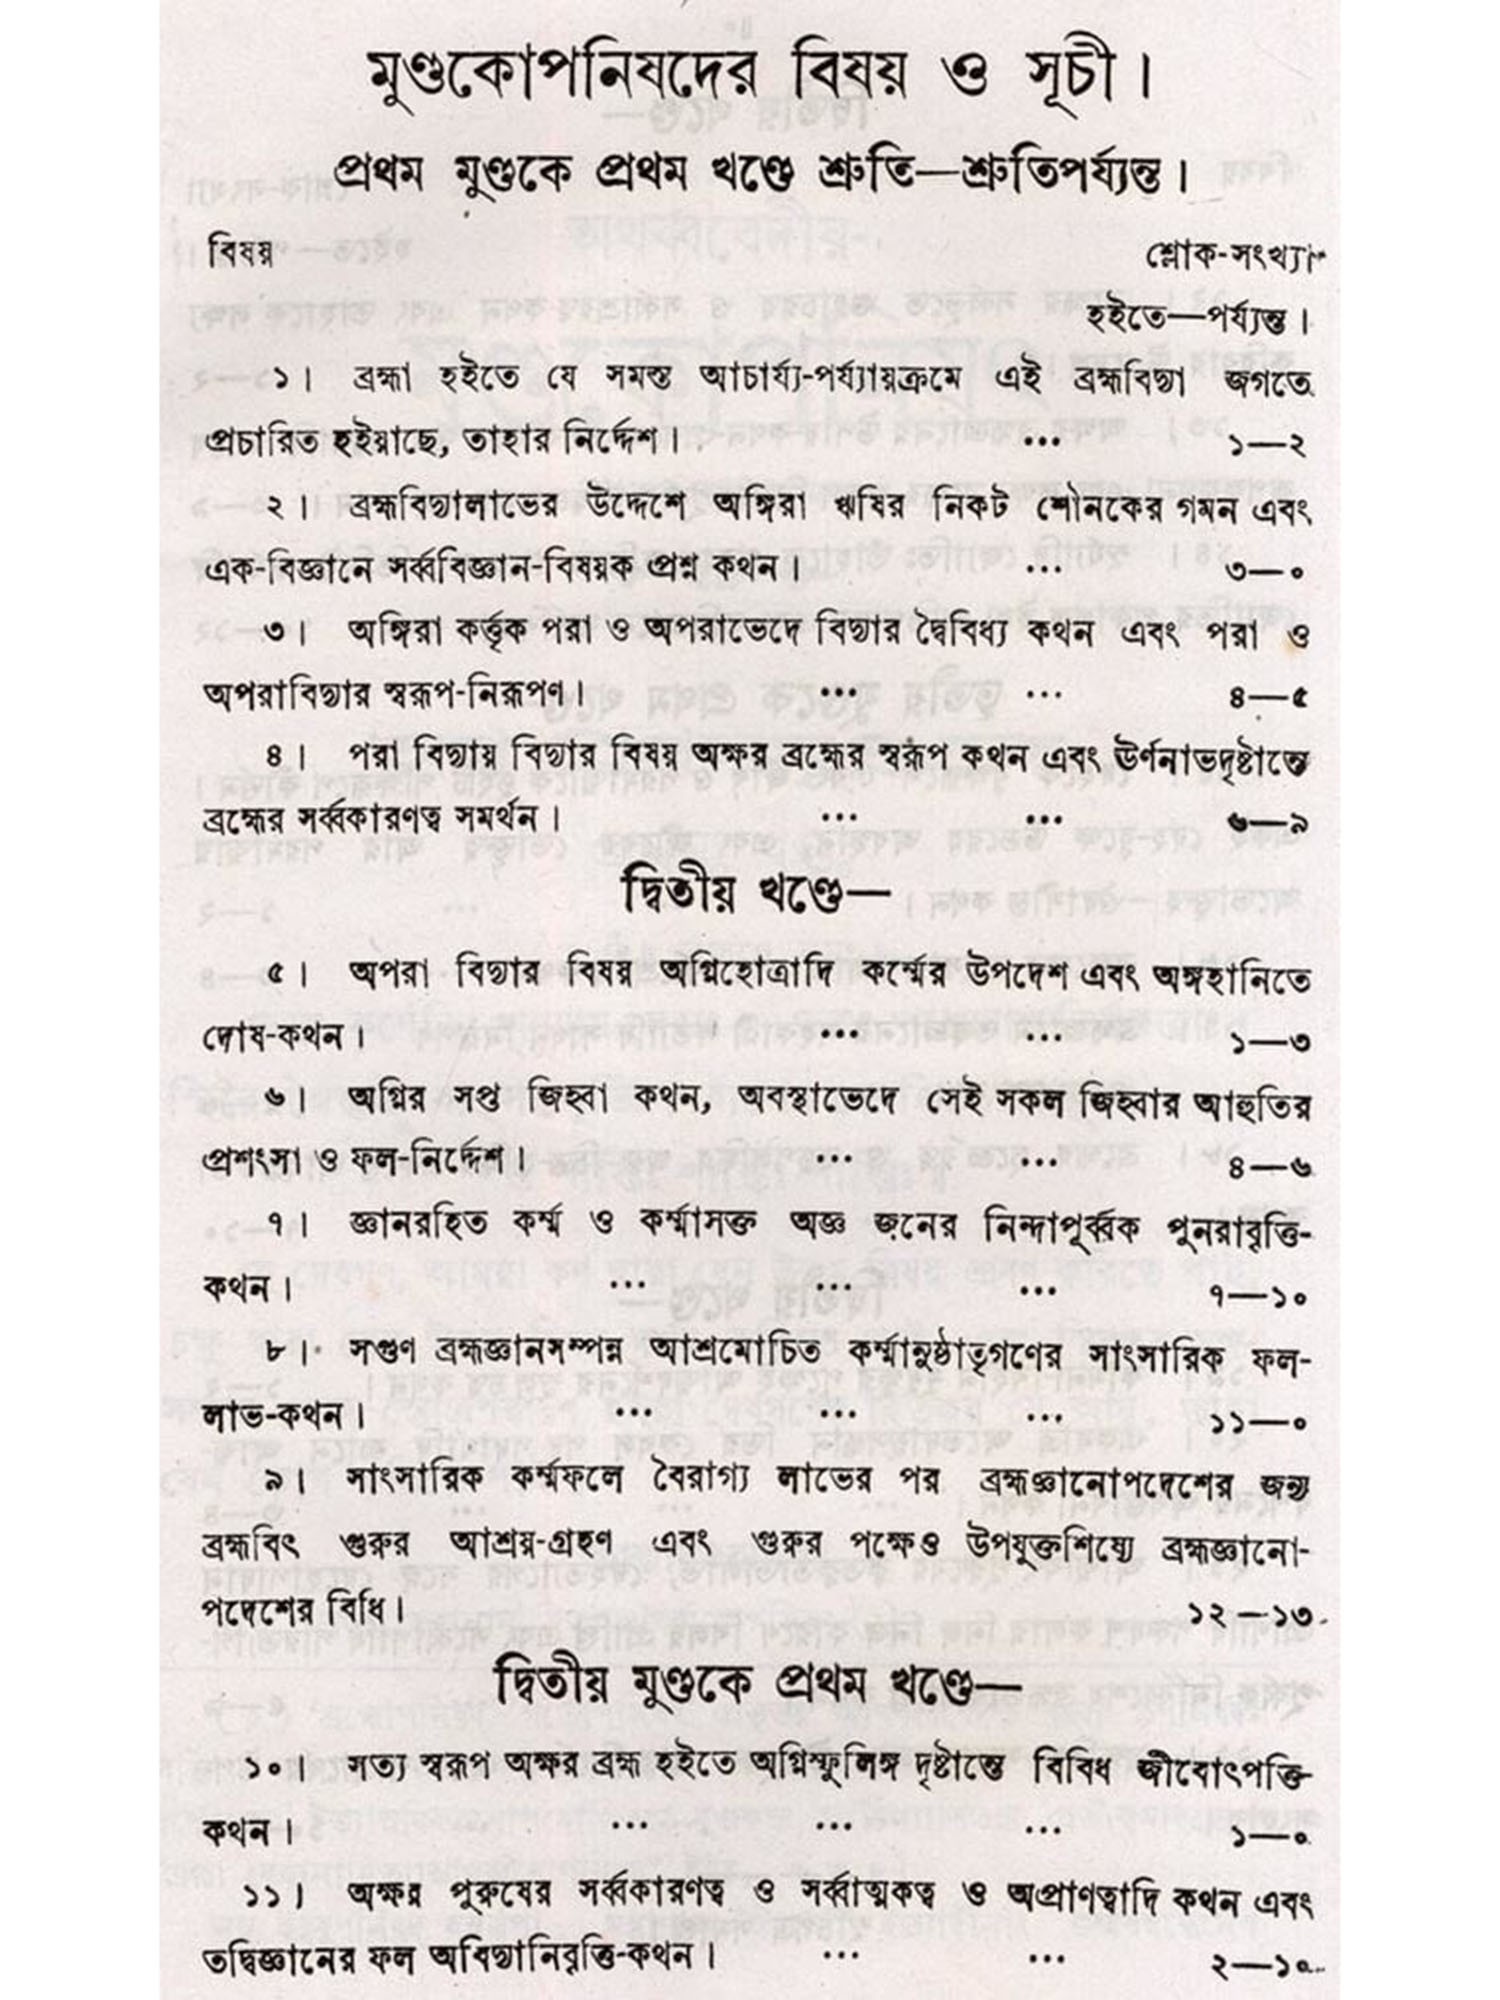 মুণ্ডকোপনিষদের বিষয় ও সূচী।
প্রথম মুণ্ডকে প্রথম খণ্ডে শ্রুতি—শ্রুতিপর্য্যন্ত।
বিষয় শ্লোক-সংখ্যা
হইতে—পর্য্যন্ত।
১। ব্রহ্মা হইতে যে সমস্ত আচার্য্য-পর্য্যায়ক্রমে এই ব্রহ্মবিদ্যা জগতে
প্রচারিত হইয়াছে, তাহার নির্দ্দেশ। ... ১—২
২। ব্রহ্মবিদ্যালাভের উদ্দেশে অঙ্গিরা ঋষির নিকট শৌনকের গমন এবং
এক-বিজ্ঞানে সর্ব্ববিজ্ঞান-বিষয়ক প্রশ্ন কথন। ... ৩—০
৩। অঙ্গিরা কর্ত্তৃক পরা ও অপরাভেদে বিদ্যার দ্বৈবিধ্য কথন এবং পরা ও
অপরাবিদ্যার স্বরূপ-নিরূপণ। ... ... ৪—৫
৪। পরা বিদ্যায় বিদ্যার বিষয় অক্ষর ব্রহ্মের স্বরূপ কথন এবং ঊর্ণনাভদৃষ্টান্তে
ব্রহ্মের সর্ব্বকারণত্ব সমর্থন। ... ... ৬—৯
দ্বিতীয় খণ্ডে—
৫। অপরা বিদ্যার বিষয় অগ্নিহোত্রাদি কর্ম্মের উপদেশ এবং অঙ্গহানিতে
দোষ-কথন। ... ... ১—৩
৬। অগ্নির সপ্ত জিহ্বা কথন, অবস্থাভেদে সেই সকল জিহ্বার আহুতির
প্রশংসা ও ফল-নির্দ্দেশ। ... ... ৪—৬
৭। জ্ঞানরহিত কর্ম্ম ও কর্ম্মাসক্ত অজ্ঞ জনের নিন্দাপূর্ব্বক পুনরাবৃত্তি-
কথন। ... ... ... ৭—১০
৮। সগুণ ব্রহ্মজ্ঞানসম্পন্ন আশ্রমোচিত কর্ম্মানুষ্ঠাতৃগণের সাংসারিক ফল-
লাভ-কথন। ... ... ... ১১—০
৯। সাংসারিক কর্ম্মফলে বৈরাগ্য লাভের পর ব্রহ্মজ্ঞানোপদেশের জন্য
ব্রহ্মবিৎ গুরুর আশ্রয়-গ্রহণ এবং গুরুর পক্ষেও উপযুক্তশিষ্যে ব্রহ্মজ্ঞানো-
পদেশের বিধি। ১২—১৩
দ্বিতীয় মুণ্ডকে প্রথম খণ্ডে—
১০। সত্য স্বরূপ অক্ষর ব্রহ্ম হইতে অগ্নিস্ফুলিঙ্গ দৃষ্টান্তে বিবিধ জীবোৎপত্তি
কথন। ... ... ... ১—০
১১। অক্ষর পুরুষের সর্ব্বকারণত্ব ও সর্ব্বাত্মকত্ব ও অপ্রাণত্বাদি কথন এবং
তদ্বিজ্ঞানের ফল অবিদ্যানিবৃত্তি-কথন। ... ... ২—১০